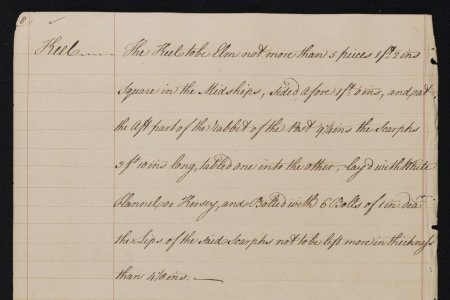 8
Keel The Keel to be Elm not more than 5 pieces 1ft. 2 ins
Square in the Midships, sided afore 1ft. 0 ins, and at
the Aft part of the rabbit of the Post ins the Scarphs
3 ft 10 ins long, tabled one into the other, lay'd with White
flannel or Kersey, and Bolted with 6 Bolts of 1 in dear.
the Lips of the Said Scarphs not to be left more in thickness
than ins: